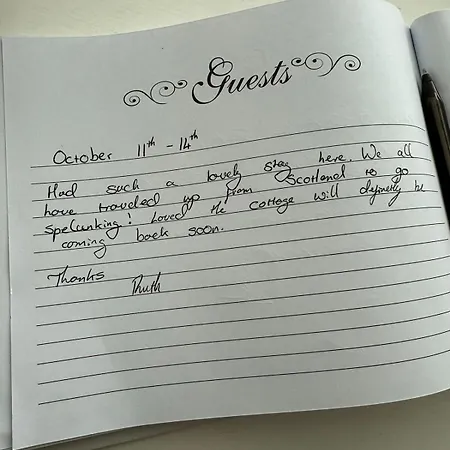 Guests
October 11th - 14th
Had such a lovely stay here. We all
have traveled up from Scotland to go
spelunking! Loved the cottage will definetly be
coming back soon.
Thanks
Ruth